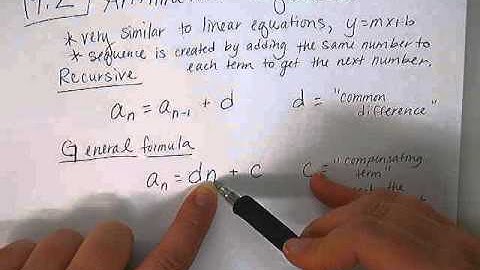 9.2
* very similar to linear equations, y=mx+b
* sequence is created by adding the same number to
each term to get the next number.
Recursive
aₙ = aₙ₋₁ + d d = "common difference"
General formula
aₙ = dn + c c = "compensating term"
the